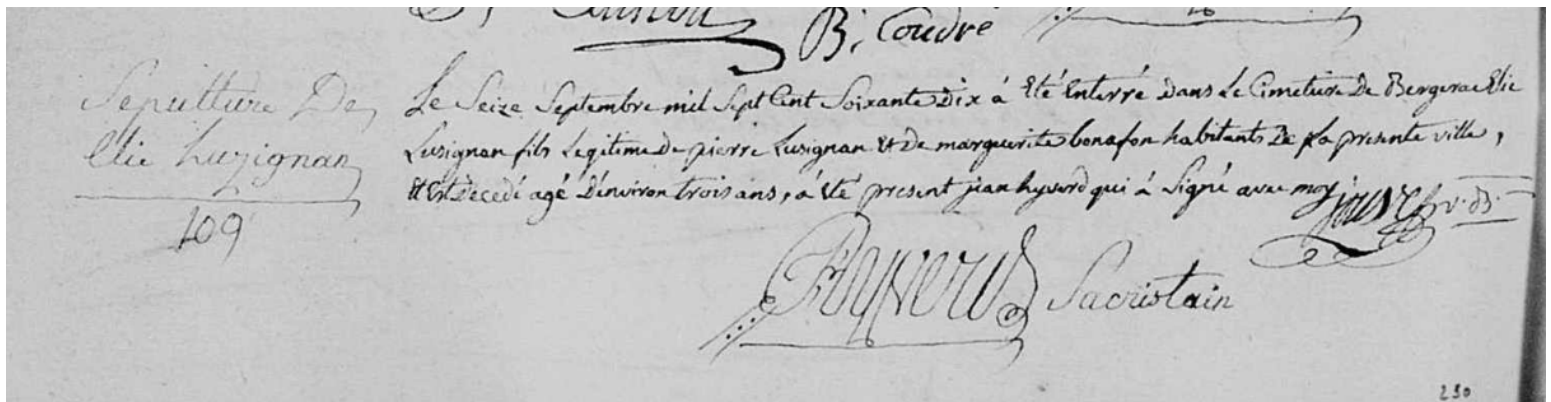 B. Coudré
Sepulture De
Elie Luzignan
109
Le Seize Septembre mil Sept Cent Soixante Dix à été Enterré Dans Le Cimetiere De Bergerac Elie
Lusignan fils Legitime de pierre Lusignan et de marguerite bonafon habitants De La presente ville,
Et Est Decedé agé D'environ trois ans, à été present jean hyverd qui à Signé avec moy
v. B.
Sacristain
230